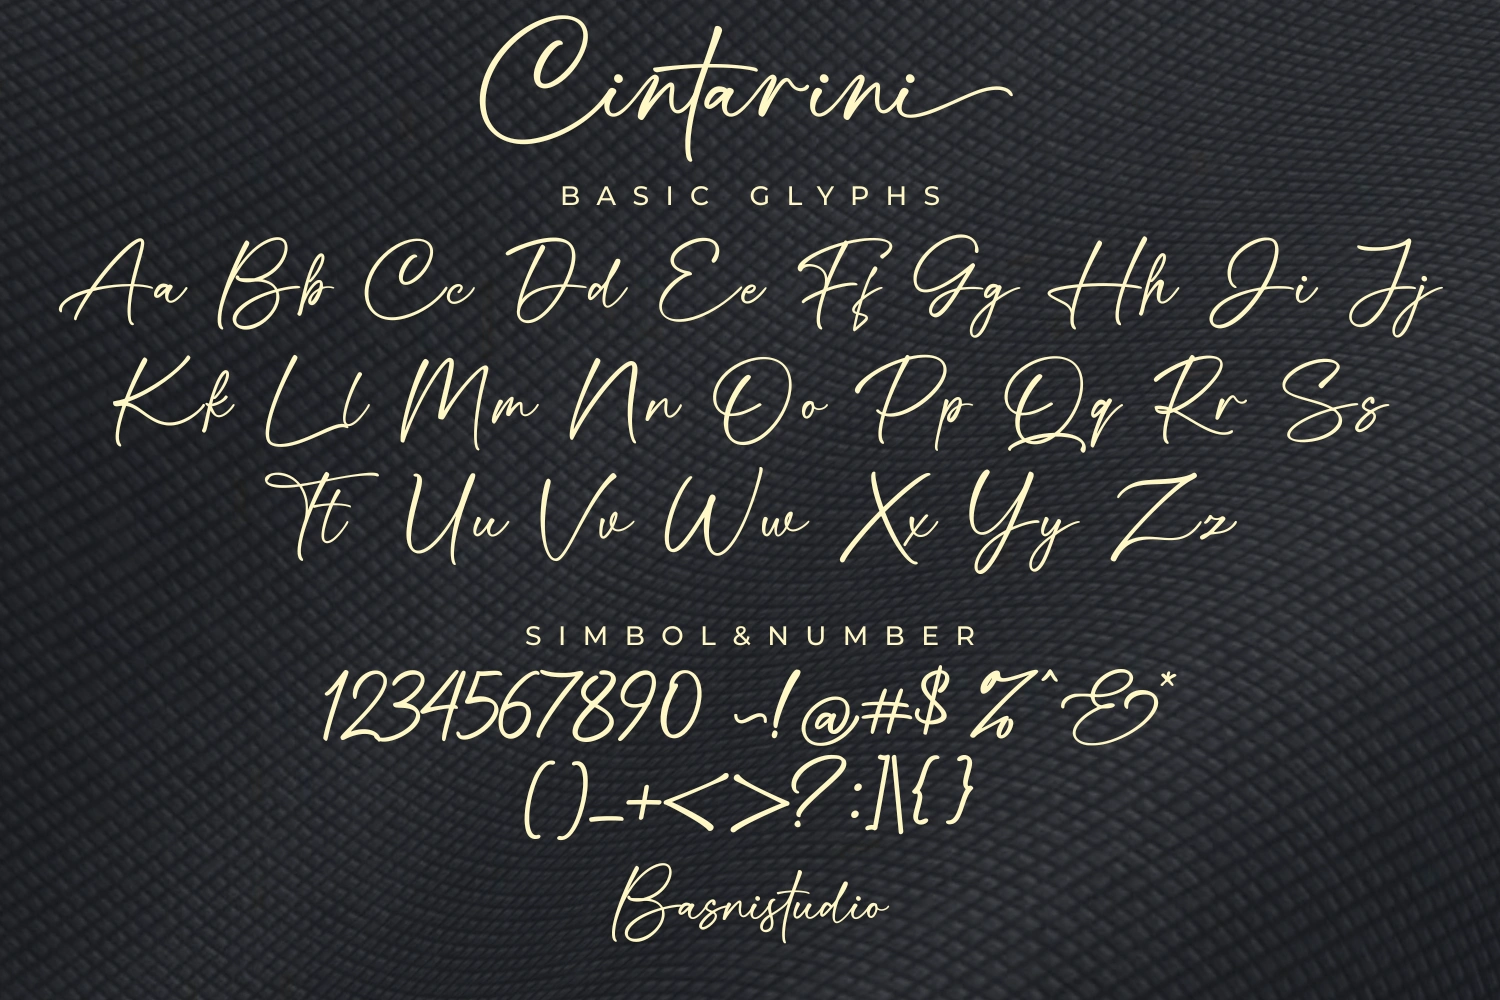 Cintarini
BASIC GLYPHS
Aa Bb Cc Dd Ee Ff Gg Hh Ii Jj
Kk Ll Mm Nn Oo Pp Qq Rr Ss
Tt Uu Vv Ww Xx Yy Zz
SIMBOL&NUMBER
1234567890 ~!@#$%^&*
()_+<>?:]\{}
Basnistudio